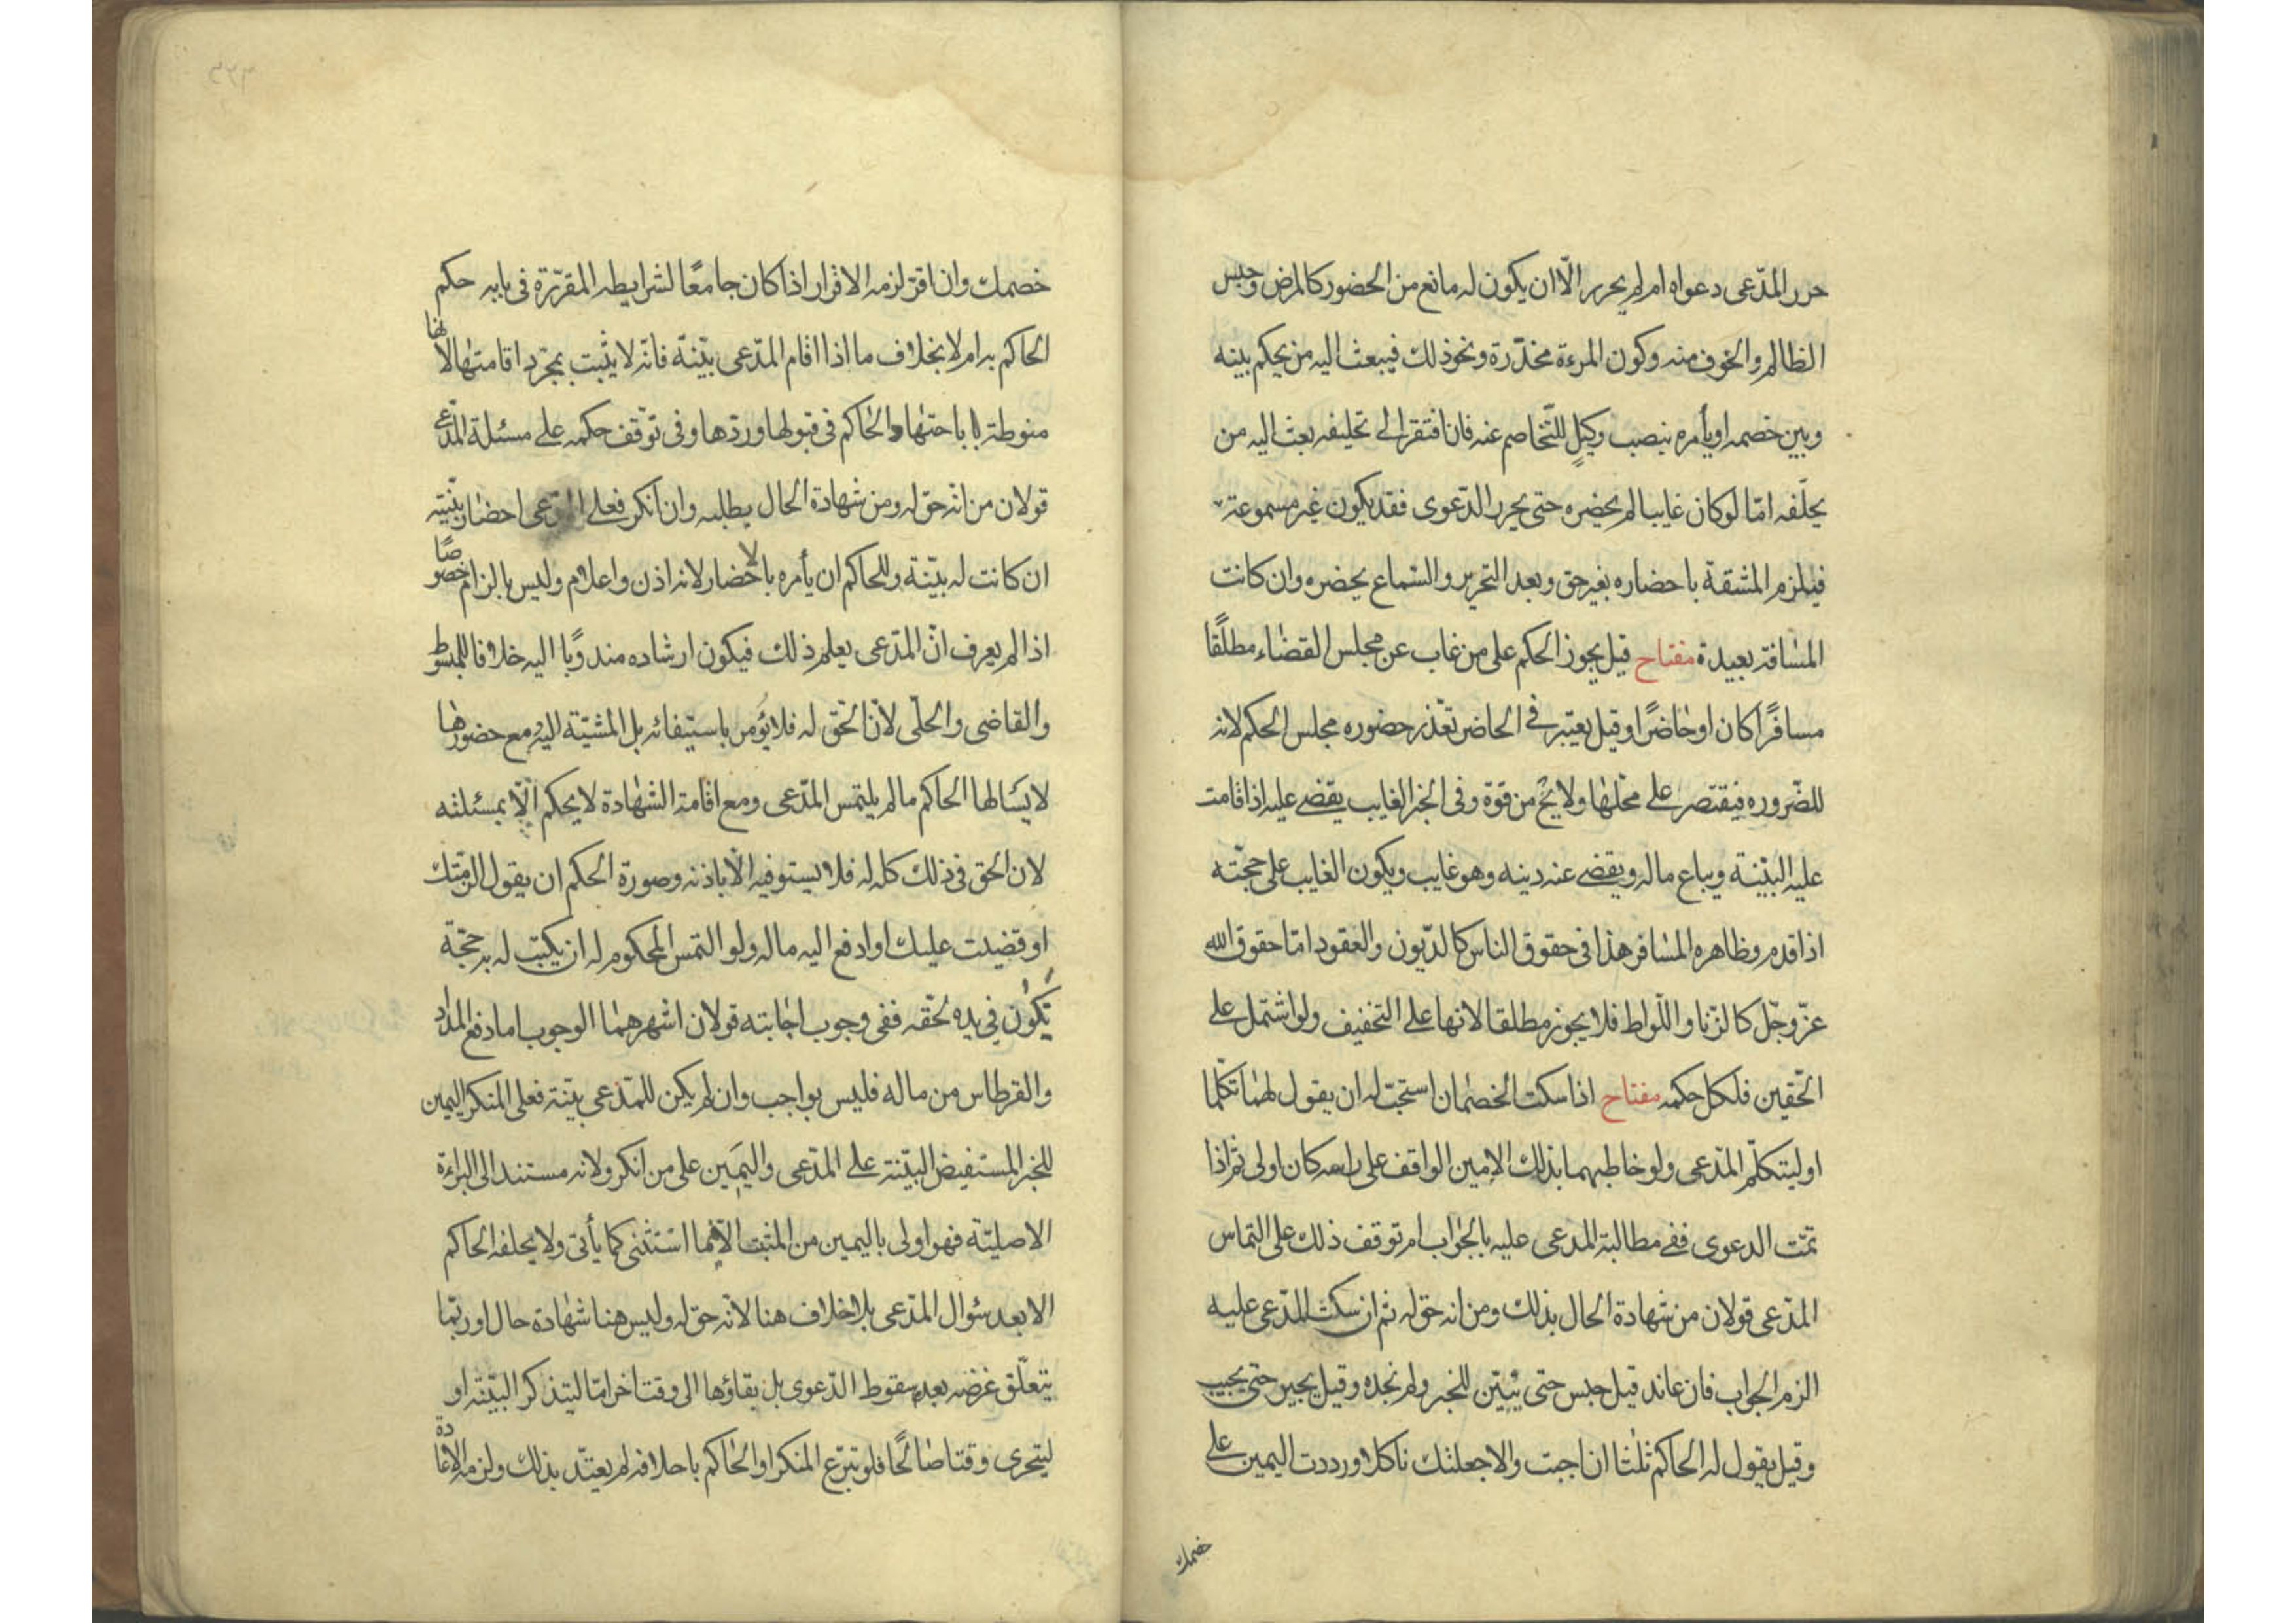 حرر المدّعى دعواه ام لم يحرر الّا ان يكون له مانع من الحضور كالمرض وحبس
الظالم والخوف منه وكون المرءة مخدّرة ونحو ذلك فيبعث اليه من يحكم بينه
وبين خصمه او يأمره بنصب وكيلٍ للتّخاصم عنه فان افتقر الى تحليفه بعث اليه من
يحلّفه امّا لو كان غايبا لم يحضره حتى يحرر الدّعوى فقد يكون غير مسموعة
فيلزم المشقة باحضاره بغير حق وبعد التحرير والسّماع يحضره وان كانت
المسافة بعيدة مفتاح قيل يجوز الحكم على من غاب عن مجلس القضاء مطلقًا
مسافرًا كان او حاضرًا وقيل يعتبر فى الحاضر تعذر حضوره مجلس الحكم لانه
للضّروره فيقتصر على محلّها ولا يخ من قوة وفى الخبر الغايب يقضى عليه اذا قامت
عليه البيّنة ويباع ماله ويقضى عنه دينه وهو غايب ويكون الغايب على حجّته
اذا قدم وظاهره المسافر هذا فى حقوق الناس كالدّيون والعقود امّا حقوق الله
عزّ وجّل كالزّنا واللّواط فلا يجوز مطلقا لانها على التخفيف ولو اشتمل على
الحّقين فلكل حكمه مفتاح اذا سكت الخصمان استحبّ له ان يقول لهما تكلّما
او ليتكلّم المدّعى ولو خاطبهما بذلك الامين الواقف على راسه كان اولى ثمّ اذا
تمّت الدعوى ففى مطالبة المدعى عليه بالجواب ام توقف ذلك على التماس
المدّعى قولان من شهادة الحال بذلك ومن انه حق له ثم ان سكت المدّعى عليه
الزم الجواب فان عاند قيل حبس حتى يبيّن للخبر ولم نجده وقيل يجبر حتى يجيب
وقيل يقول له الحاكم ثلثا ان اجبت والا جعلتك ناكلا ورددت اليمين على
خصمك
خصمك وان اقرّ لزمه الاقرار اذا كان جامعًا لشرايطه المقرّرة فى بابه حكم
الحاكم به ام لا بخلاف ما اذا اقام المدّعى بيّنة فانّه لا يثبت بمجرّد اقامتها لانها
منوطة باباحتها والحاكم فى قبولها وردّها وفى توّقف حكمه على مسئلة المدّعى
قولان من انّه حق له ومن شهادة الحال بطلبه وان انكر فعلى المدّعى احضار بيّنته
ان كانت له بيّنة وللحاكم ان يأمره بالاحضار لانه اذن واعلام وليس بالزام خصوصًا
اذا لم يعرف انّ المدّعى يعلم ذلك فيكون ارشاده مندوبًا اليه خلافا للمبسوط
والقاضى والحلّى لانّ الحّق له فلا يؤمر باستيفائه بل المشيّة اليه ومع حضورها
لا يسالها الحاكم ما لم يلتمس المدّعى ومع اقامة الشهادة لا يحكم الّا بمسئلته
لان الحق فى ذلك كله له فلا يستوفيه الّا باذنه وصورة الحكم ان يقول الزمتك
او قضيت عليك او ادفع اليه ماله ولو التمس المحكوم له ان يكتب له به حجّة
تكون فى يده بحّقه ففى وجوب اجابته قولان اشهرهما الوجوب اما دفع المداد
والقرطاس من ماله فليس بواجب وان لم يكن للمّدعى بيّنة فعلى المنكر اليمين
للخبر المستفيض البيّنة على المدّعى واليمين على من انكر ولانه مستند الى البراءة
الاصليّة فهو اولى باليمين من المثبت الّا فيما استثنى كما يأتى ولا يحلفه الحاكم
الا بعد سئوال المدّعى بلا خلاف هنا لانّه حق له وليس هنا شهادة حال او ربّما
يتعلّق غرضه بعدم سقوط الدّعوى بل بقاؤها الى وقت اخر امّا ليتذكر البيّنة او
ليتحرى وقتا صالحًا فلو تبرّع المنكر او الحاكم باحلافه لم يعتّد بذلك ولزمه الاعادة